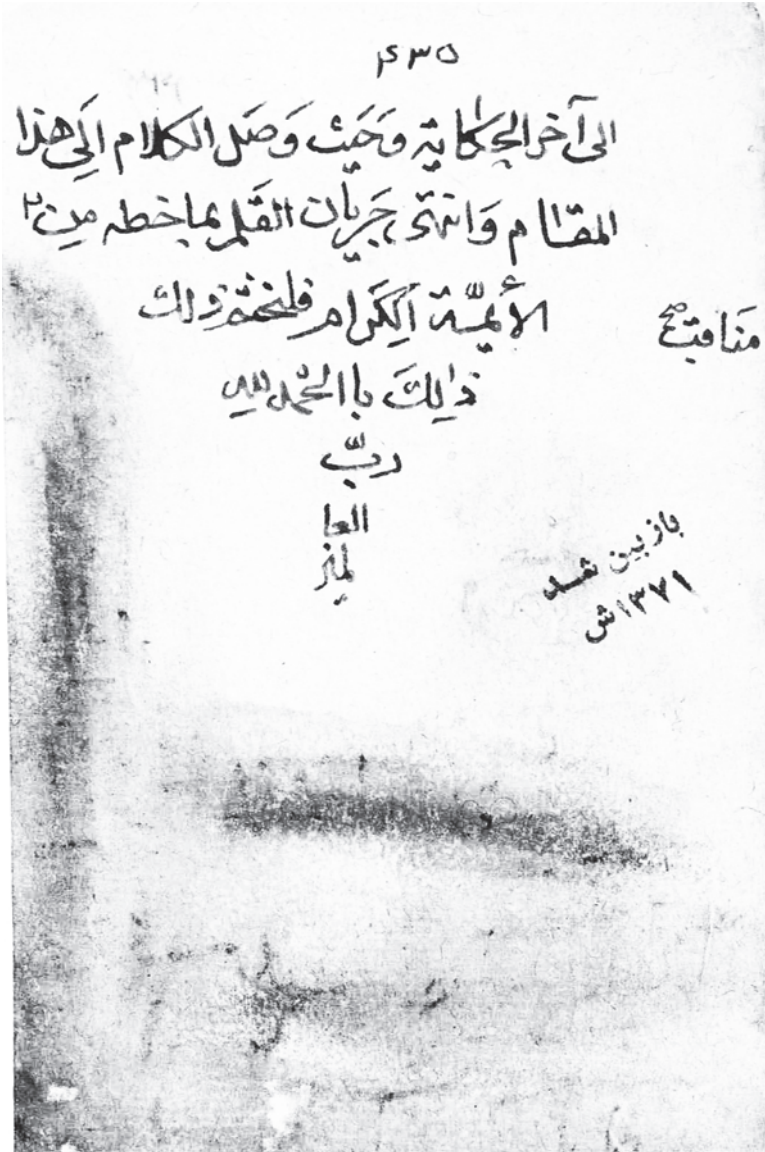 ۴۳۵
الى آخر الحكاية وَحَيث وَصَل الكلام الَى هذا
المقام وَانتهى جَريان القَلم بما خطه مِن ٢
الأئمّة الكَرام فلنختم ذلك
مَناقب صح
ذالِكَ باالحمد لله
ربّ
العا
لمين
بازبین شد
۱۳۷۱ش